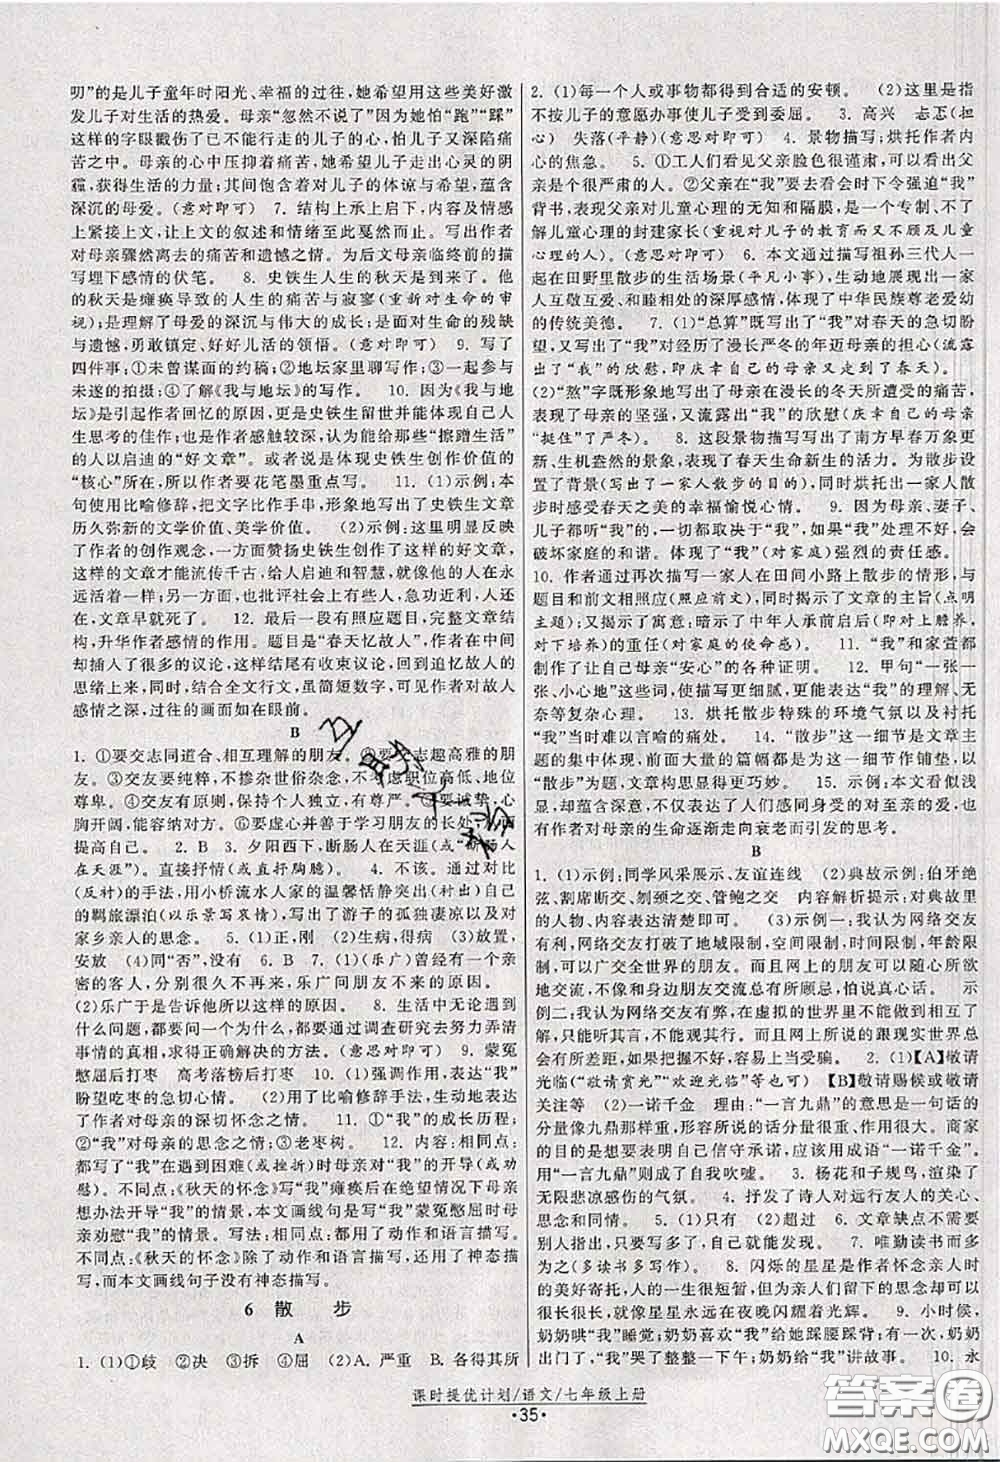 叨”的是儿子童年时阳光、幸福的过往,她希望用这些美好激
发儿子对生活的热爱。母亲“忽然不说了”,因为她怕“跑”“踩”
这样的字眼戳伤了已不能行走的儿子的心,怕儿子又深陷痛
苦之中。母亲的心中压抑着痛苦,她希望儿子走出心灵的阴
霾,获得生活的力量;其中包括对儿子的体谅与希望,蕴含
深沉的母爱。(意对即可) 7. 结构上承上启下,内容及情感
上紧接上文,让上文的叙述和情绪至此戛然而止。写出作者
对母亲骤然离世的痛苦和遗憾之情。为后文母亲临终前的描
写埋下感情的伏笔。 8. 史铁生人生的秋天是到来了。他
的秋天是瘫痪导致的人生的痛苦与寂寥(积极对生命的审
视);是理解了母爱的深沉与伟大的成长;是面对生命的残缺
与遗憾,勇敢镇定、好好儿活的领悟。(意对即可) 9. 写了
四件事:①未曾谋面的约稿;②地坛家里聊写作;③一起参与
未遂的拍摄;④了解《我与地坛》的写作。 10. 因为《我与地
坛》是引起作者回忆的原因,更是史铁生留世并能体现自己人
生思考的佳作;也是作者感触较深,认为能给那些“擦蹭生活”
的人以启迪的“好文章”。或者说是体现史铁生创作价值的
“核心”所在,所以作者要花笔墨重点写。 11. (1)示例:本
句使用比喻修辞,把文字比作手串,形象地写出史铁生文章
历久弥新的文学价值、美学价值。 (2)示例:这里明显反映
了作者的创作观念,一方面赞扬史铁生创作了这样的好文章,
这样的文章才能流传千古,给人启迪和智慧,就像他的人一样
永远活着;另一方面,也批评社会上有些人,急功近利,人还
在,文章早就死了。 12. 最后一段有照应题目,完整文章结
构,升华作者感情的作用。题目是“春天忆故人”,作者在中间
却插入了很多的议论,这样结尾有收束议论,回到追忆故人的
思绪上来,同时,结合全文行文,虽简短数字,可见作者对故人
感情之深,过往的画面如在眼前。
B
1. ①要交志同道合、相互理解的朋友。②要交志趣高雅的朋
友。③交友要纯粹,不掺杂世俗杂念,不考虑职位高低、地位
尊卑。④交友有原则,保持个人独立,有尊严。⑤要诚挚,心
胸开阔,能容纳对方。⑥要虚心并善于学习朋友的长处,巩固
提高自己。 2. B 3. 夕阳西下,断肠人在天涯(或断肠人
在天涯)。直接抒情(或直抒胸臆) 4. 不该。通过对比
(反衬)的手法,用小桥流水人家的温馨恬静突出(衬出)自己
的羁旅漂泊(以乐景写哀情),写出了游子的孤独凄凉以及对
家乡亲人的思念。 5. (1)正,刚 (2)生病,得病 (3)放置,
安放 (4)同“否”,没有 6. B 7. (1)(乐广)曾经有一个亲
密的客人,分别很久不再来,乐广问朋友不再来的原因。
(2)乐广于是告诉他所以这样的原因。 8. 生活中无论遇到
什么问题,都要问个为什么,都要通过调查研究去努力弄清
事情的真相,求得正确解决的方法。(意思对即可) 9. 蒙冤
憋屈后打枣 高考落榜后打枣 10. (1)强调作用,表现“我”
盼望吃枣的急切心情。 (2)用了比喻修辞手法,生动地表达
了作者对母亲的深切怀念之情。 11. ①“我”的成长历程;
②“我”对母亲的思念之情;③老枣树。 12. 内容:相同点:
都写了“我”在遇到困难(或挫折)时母亲对“我”的关怀。
不同点:《秋天的怀念》写“我”瘫痪后在绝望情况下母亲
想办法开导“我”的情景,本文画线句是写“我”蒙冤憋屈时母
亲劝慰“我”的情景。写法:相同点:都有动作和语言描写。
不同点:《秋天的怀念》除了动作和语言描写外,还有神态描
写,而本文画线句子没有神态描写。
6 散 步
A
1. (1)①歧 ②决 ③拆 ④屈 (2)A. 严重 B. 各得其所
2. (1)每一个人或事物都得到合适的安顿。 (2)这里是指
不按儿子的意愿办事使儿子受到委屈。 3. 高兴 忐忑(担
心) 失落(平静)(意思对即可) 4. 景物描写;烘托作者内
心的焦急。 5. ①工人们看见父亲脸色很谨肃,可以看出父
亲是个很严肃的人。②父亲在“我”要去看会时下令强迫“我”
背书,表现父亲对儿童心理的无知和隔膜,是一个专制、不了
解儿童心理的封建家长(重视对儿女的教育又不顾及儿童
心理的父亲)。(意思对即可) 6. 本文通过描写祖孙三代人
一起在田野里散步的生活场景(平凡小事),生动地展现了一
家人互敬互爱、和睦相处的深厚感情,体现了中华民族尊老爱幼
的传统美德。 7. (1)“总算”既写出了“我”对春天的急切盼
望,又表现了“我”对经历了漫长严冬的年迈母亲的体贴(流露
出了“我”的欣慰,即庆幸自己的母亲又走到了春天)。
(2)“熬”字既形象地写出了母亲在漫长的冬天所遭受的痛苦,
表现了母亲的坚强,又流露出“我”的欣慰(庆幸自己的母亲
“挺住”了严冬)。 8. 这段景物描写写出了南方早春万象更
新、生机盎然的景象,表现了春天生命新生的活力。为散步设
置了背景(写出了一家人散步的目的),同时烘托出一家人散
步时感受春天之美的幸福愉悦心情。 9. 因为母亲、妻子、
儿子都听“我”的,一切都取决于“我”,如果“我”处理不好,会
破坏家庭的和谐。体现了“我”(对家庭)强烈的责任感。
10. 作者通过再次描写一家人在田间小路上散步的情形,与
题目和前文相照应(照应前文),同时揭示了文章的主旨(点明
主题);又寓意深刻,暗示了中年人承前启后(对上赡养,
对下培养)的重任(对家庭的使命感)。 11. “我”和家萱都
制作了让自己母亲“安心”的各种证明。 12. 甲句“一张一
张、小心地”这些词,使描写更细腻,更能表达“我”的理解、无
奈等复杂心理。 13. 烘托散步特殊的环境气氛以及衬托
“我”当时难言的痛处。 14. “散步”这一细节是文章主题
的集中体现,前面大量的篇幅都是在为这一细节作铺垫,以
“散步”为题,文章构思显得更巧妙。 15. 示例:本文看似浅
显,却蕴含深意,不仅表达了人们感同身受的对至亲的爱,也
有作者对母亲的生命逐渐走向衰老而引发的思考。
B
1. (1)示例:同学风采展示、友谊连线 (2)典故示例:伯牙绝
弦、割席断交、刎颈之交、管鲍之交 内容解析提示:对典故里
的人物、内容表达清楚即可。 (3)示例一:我认为网络交友
有利,网络交友打破了地域限制,空间限制,时间限制,年龄限
制,可以广交全世界的朋友。而且网上的朋友可以随心所欲
地交流,不像和身边朋友交流有所顾忌,怕说真心话。 示
例二:我认为网络交友有弊,在虚拟的世界里不了解对方,
只能听其言,不能观其行。而且网上所说的跟现实世界中会
有所差距,如果把握不好,容易上当受骗。 2. (1)【A】敬请
光临(“敬请赏光”“欢迎光临”等也可) 【B】敬请赐候或敬请
关注等 (2)一诺千金 理由:“一言九鼎”的意思是一句话的
分量像九鼎那样重,形容所说的话分量很重、作用很大。商家
的本意是要表明自己信守承诺,应该用成语“一诺千金”。
用“一言九鼎”则成了自我吹嘘。 3. 杨花和子规鸟,渲染了
无限悲凉感伤的气氛。 4. 抒发了诗人对远行友人的关心、
思念和同情。 5. (1)只有 (2)超过 6. 文章缺点不需要
别人指出,多写作自己就能发现。 7. 唯勤读书而多为之
(多读书多写作)。(意对即可) 8. 闪烁的星星是作者怀念亲人时
的美好寄托,人的一生很短暂,但亲人们留下的思念却能永
恒,就像星星永远在夜晚闪耀着光辉。 9. 小时候,
奶奶哄“我”睡觉;奶奶喜欢“我”给她踩腰踩背;有一次,奶奶
出门了,“我”哭了整整一下午;奶奶给“我”讲故事。 10. 永
课时提优计划/语文/七年级上册
·35·
答案圈
MXQE.COM